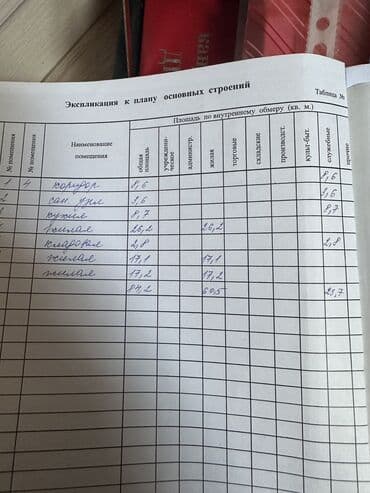 Экспликация к плану основных строений
Таблица №
Площадь по внутреннему обмеру (кв. м.)
№ помещения
№ помещения
Наименование помещения
общая площадь
учрежденческое
администр.
жилая
торговые
складские
производст.
культ-быт.
служебные
прочие
1 4 коридор 8,6 8,6
2 сан. узл 3,6 3,6
кухня 8,7 8,7
жилая 26,2 26,2
кладовая 2,8 2,8
жилая 17,1 17,1
жилая 17,2 17,2
84,2 60,5 23,7